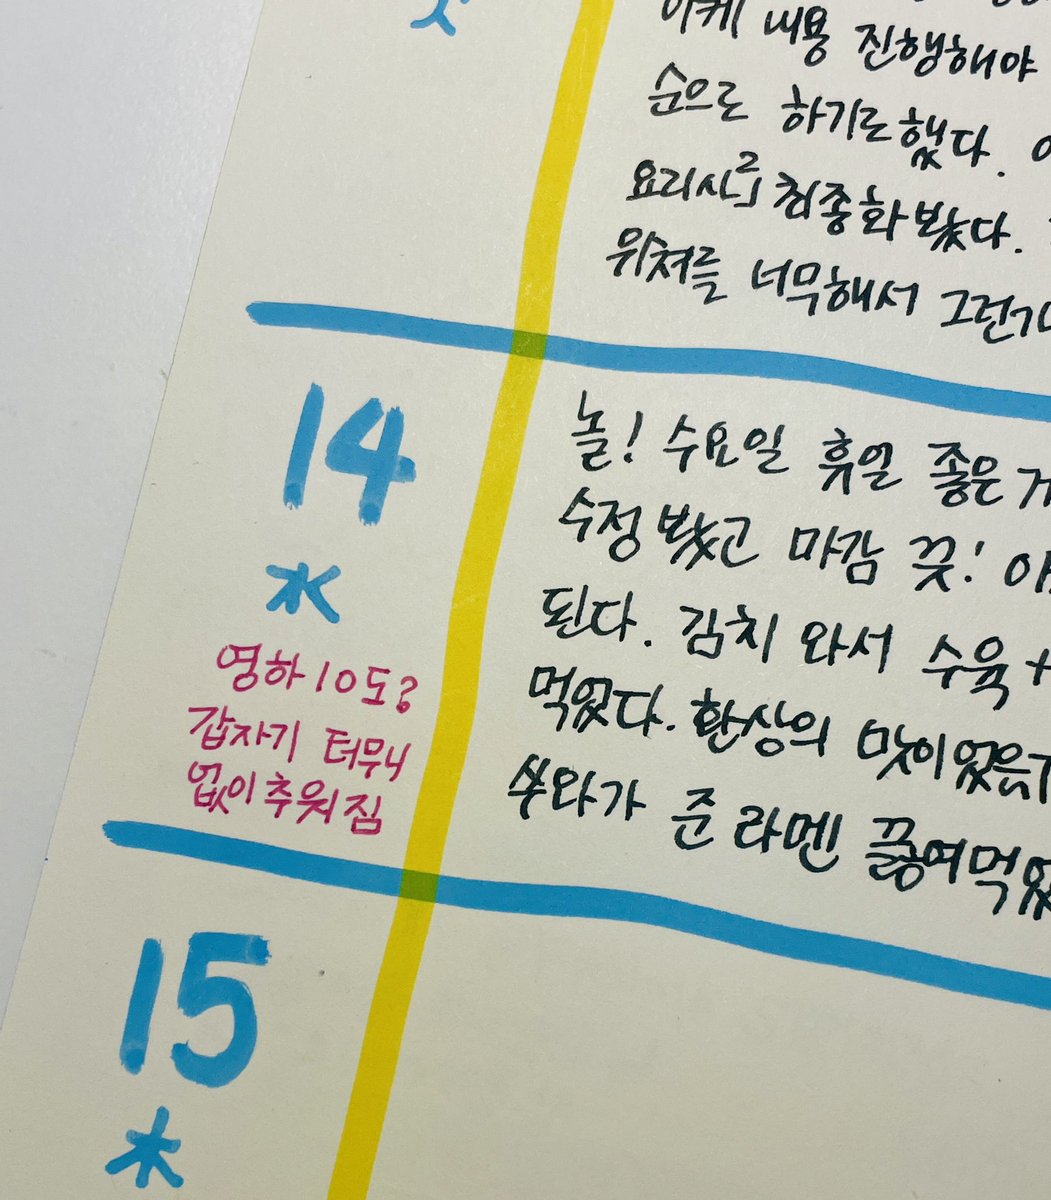 내용 진행해야
순으로 하기로했다.
요리사2」 최종화 봤다.
위쳐를 너무해서
14
水
영하10도?
갑자기 터무니
없이추워짐
놀! 수요일 휴일 좋은
수정 봤고 마감 끗!
된다. 김치 와서 수육+
먹었다. 환상의
쑤와가 준 라멘 끓여먹었
15
木